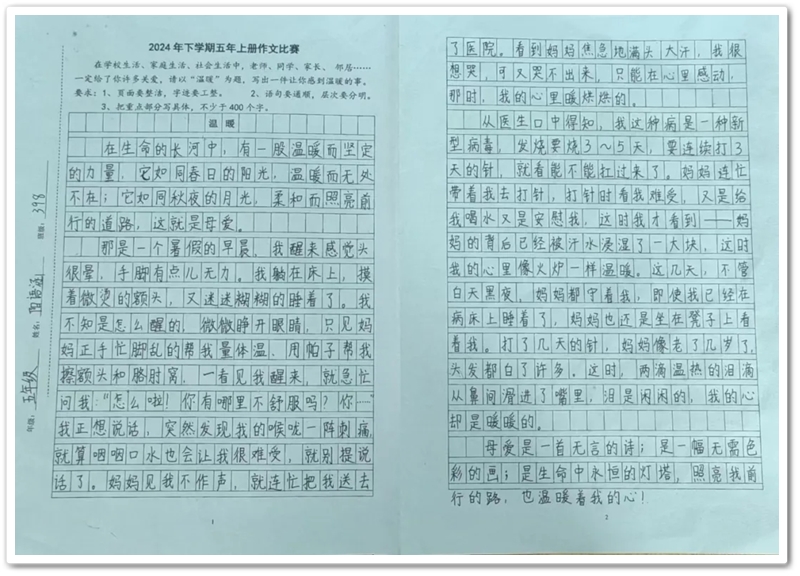 2024年下学期五年上册作文比赛
在学校生活、家庭生活、社会生活中，老师、同学、家长、邻居……
一定给了你许多关爱，请以“温暖”为题，写出一件让你感到温暖的事。
要求：1、页面要整洁，字迹要工整。 2、语句要通顺，层次要分明。
3、把重点部分写具体，不少于400个字。
温 暖
在生命的长河中，有一股温暖而坚定
的力量，它如同春日的阳光，温暖而无处
不在；它如同秋夜的月光，柔和而照亮前
行的道路，这就是母爱。
那是一个暑假的早晨，我醒来感觉头
很晕，手脚有点儿无力。我躺在床上，摸
着微烫的额头，又迷迷糊糊的睡着了。我
不知是怎么醒的，微微睁开眼睛，只见妈
妈正手忙脚乱的帮我量体温，用帕子帮我
擦额头和胳肘窝，一看见我醒来，就急忙
问我：“怎么啦！你有哪里不舒服吗？你……”
我正想说话，突然发现我的喉咙一阵刺痛，
就算咽咽口水也会让我很难受，就别提说
话了。妈妈见我不作声，就连忙把我送去
1
年级：五年级
姓名：
班级：398
了医院。看到妈妈焦急地满头大汗，我很
想哭，可又哭不出来，只能在心里感动，
那时，我的心里暖烘烘的。
从医生口中得知，我这种病是一种新
型病毒，发烧要烧3～5天，要连续打3
天的针，就看能不能扛过来了。妈妈连忙
带着我去打针，打针时看我难受，又是给
我喝水又是安慰我，这时我才看到——妈
妈的背后已经被汗水浸湿了一大块，这时
我的心里像火炉一样温暖。这几天，不管
白天黑夜，妈妈都守着我，即使我已经在
病床上睡着了，妈妈也还是坐在凳子上看
着我。打了几天的针，妈妈像老了几岁了，
头发都白了许多。这时，两滴温热的泪滴
从鼻间滑进了嘴里，泪是闲闲的，我的心
却是暖暖的。
母爱是一首无言的诗；是一幅无需色
彩的画；是生命中永恒的灯塔，照亮我前
行的路，也温暖着我的心！
2